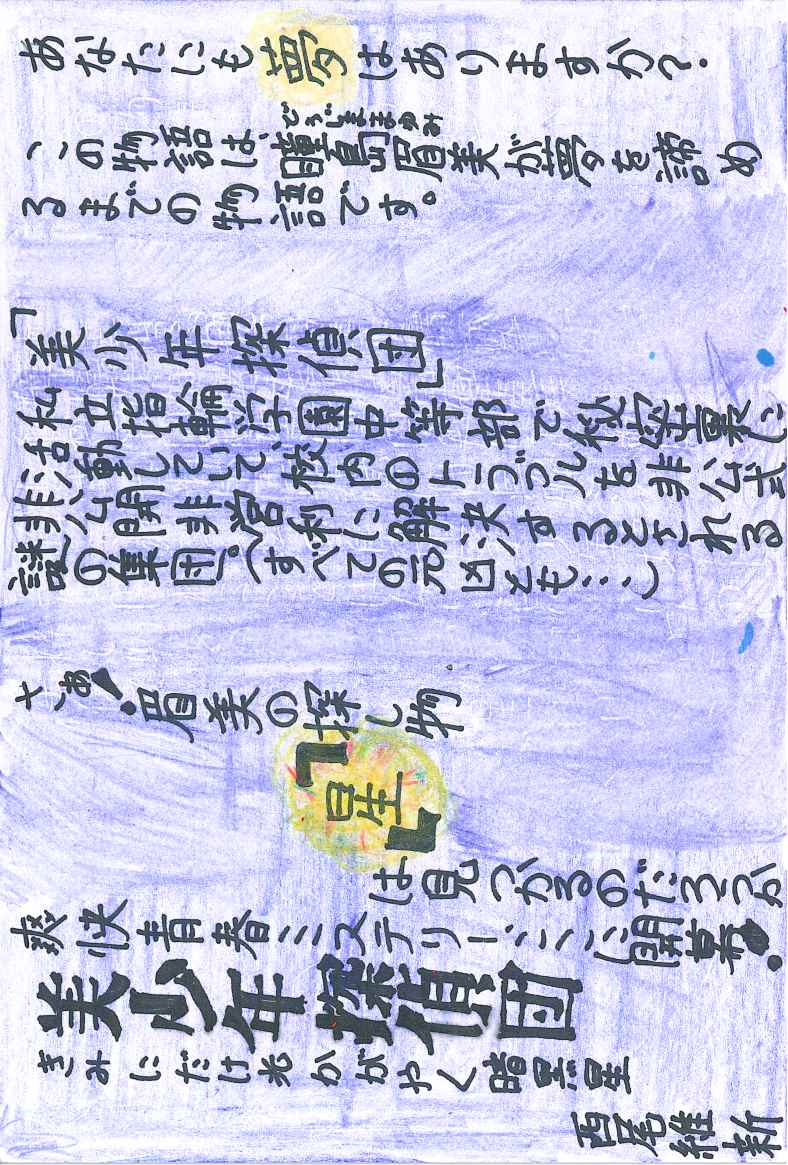 あなたにも夢はありますか?
この物語は、瞳島眉美が夢を諦め
どうじままゆみ
るまでの物語です。
「美少年探偵団」
私立指輪学園中等部で秘密裏に
活動していて校内のトラブルを非公式
非公開非営利に解決するとされる
謎の集団。(すべての元凶とも…)
さぁ!眉美の探し物
『星』
は見つかるのだろうか
爽快青春ミステリーここに開幕!
美少年探偵団
きみにだけ光かがやく暗黒星
西尾維新